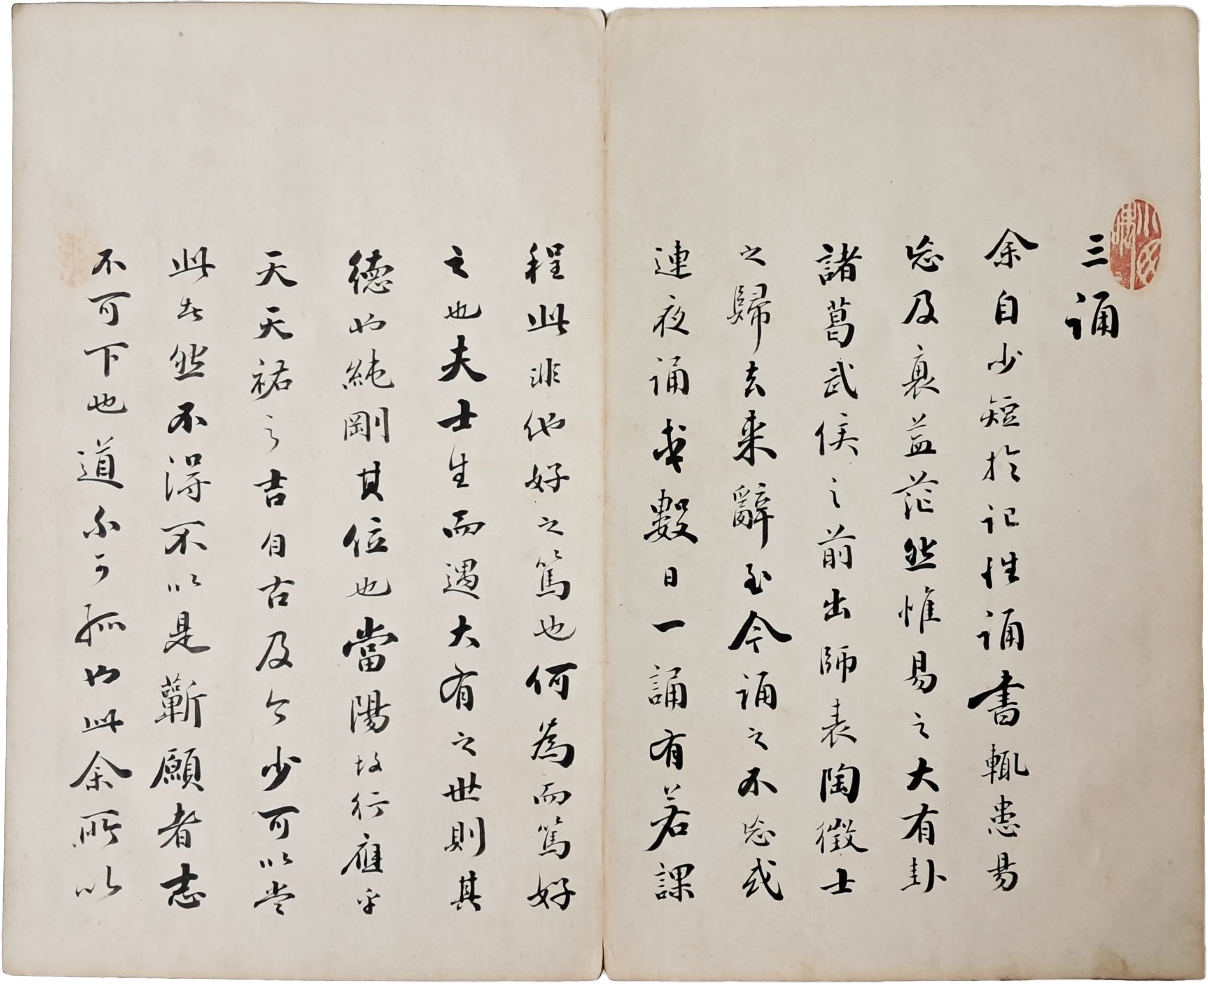 三誦
余自少短於記性誦書輒患易
忘及衰益茫然惟易之大有卦
諸葛武侯之前出師表陶徵士
之歸去來辭至今誦之不忘或
連夜誦或數日一誦有若課
程此非他好之篤也何為而篤好
之也夫士生而遇大有之世則其
德也純剛其位也當陽故行應乎
天天祐之吉自古及今少可以當
此者然不得不以是蘄願者志
不可下也道不可孤也此余所以